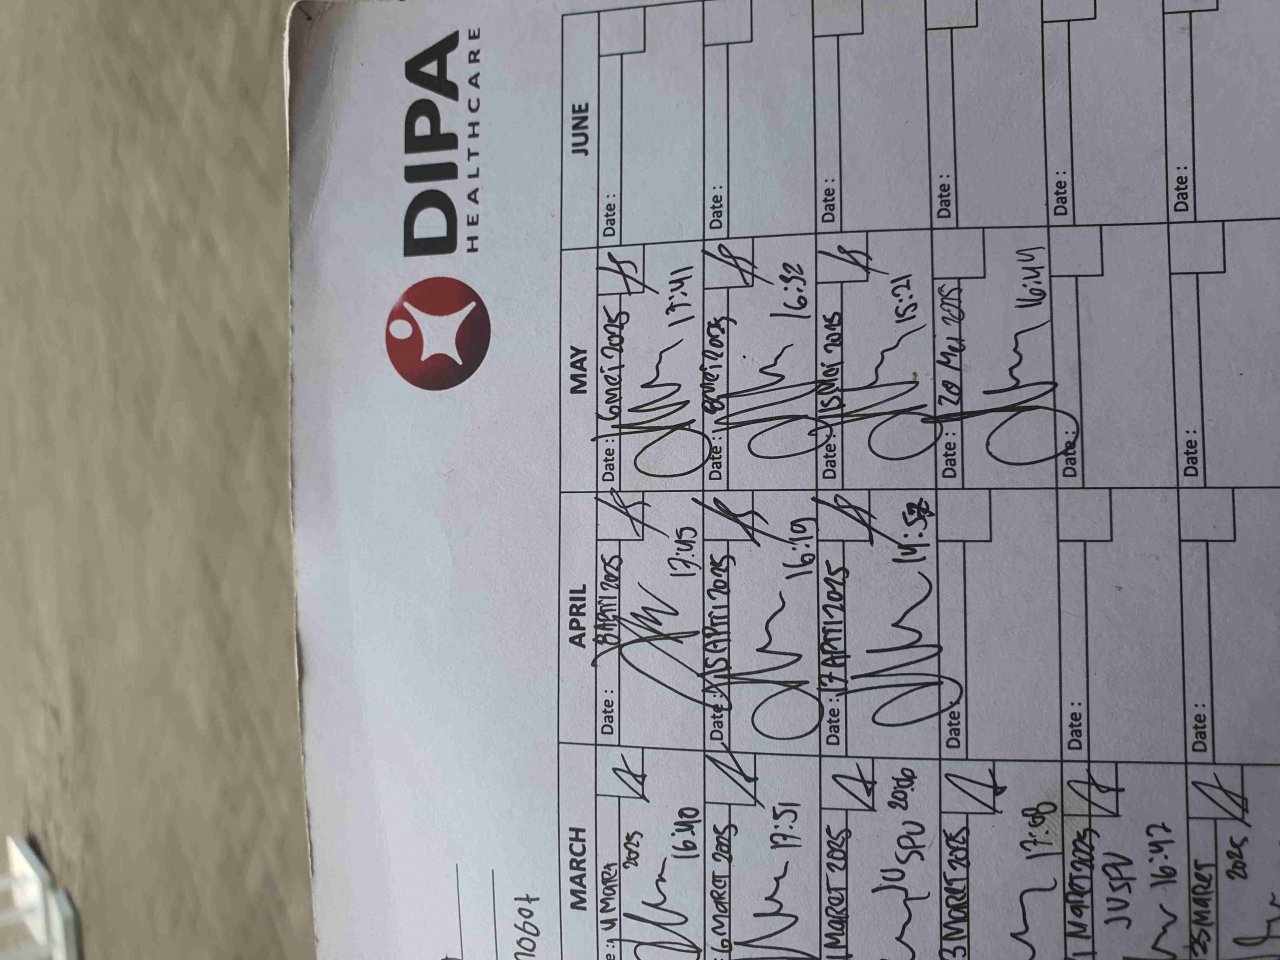 DIPA
HEALTHCARE
MARCH APRIL MAY JUNE
4 Maret 2025
16:40
Date : 8 April 2025
17:45
Date : 6 Mei 2025
17:41
Date :
6 MARET 2025
17:51
Date : 15 APril 2025
16:19
Date : 8 Mei 2025
16:32
Date :
1 MARET 2025
JU SPV 20:06
Date : 17 APril 2025
14:52
Date : 15 Mei 2025
15:21
Date :
3 MARET 2025
17:08
Date :
Date : 20 Mei 2025
16:44
Date :
1 MARET 2025
JU SPV
16:42
Date :
Date :
Date :
25 MARET
2025
Date :
Date :
Date :